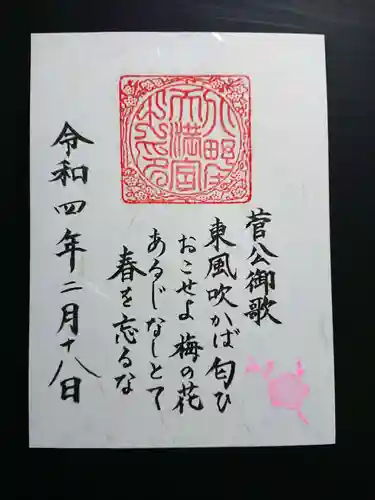 菅公御歌
東風吹かば匂ひ
おこせよ梅の花
あるじなしとて
春を忘るな
令和四年二月十八日